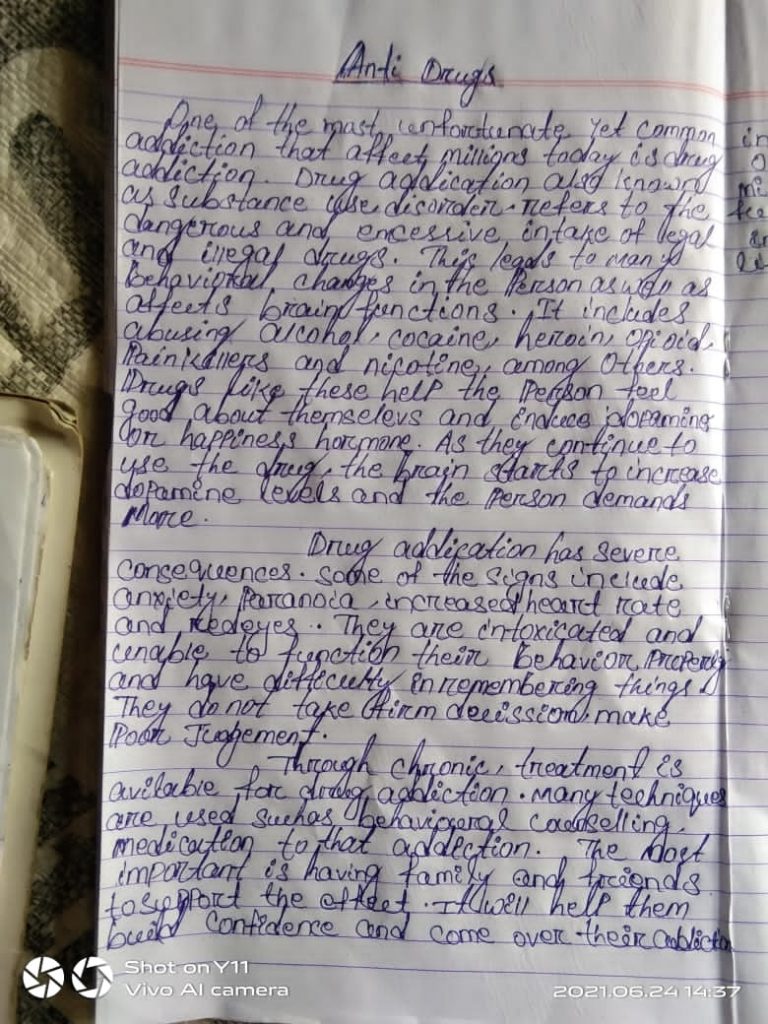 Anti Drugs
One of the most unfortunate yet common
addiction that affect millions today is drug
addiction. Drug addication also known
as substance use disorder refers to the
dangerous and excessive intake of legal
and illegal drugs. This leads to many
Behavioral changes in the Person as well as
affects brain functions. It includes
abusing alcohol, cocaine, heroin, opioid,
Painkillers and nicotine, among Others.
Drugs like these help the Person feel
good about themselevs and induce dopamine
or happiness hormone. As they continue to
use the drug, the brain starts to increase
dopamine levels and the Person demands
More.
Drug addication has severe
consequences. Some of the signs include
anxiety, Paranoia, increased heart rate
and Redeyes. They are intoxicated and
unable to function their Behavior Properly
and have difficulty in remembering things.
They do not take firm decission, make
Poor Judgement.
Through chronic, treatment is
avilable for drug addiction. Many techniques
are used suchas behavioral counselling,
medication to that addiction. The most
important is having family and friends
to support the effect. It will help them
build Confidence and come over their addiction
in
mi
Shot on Y11
Vivo AI camera
2021.06.24 14:37